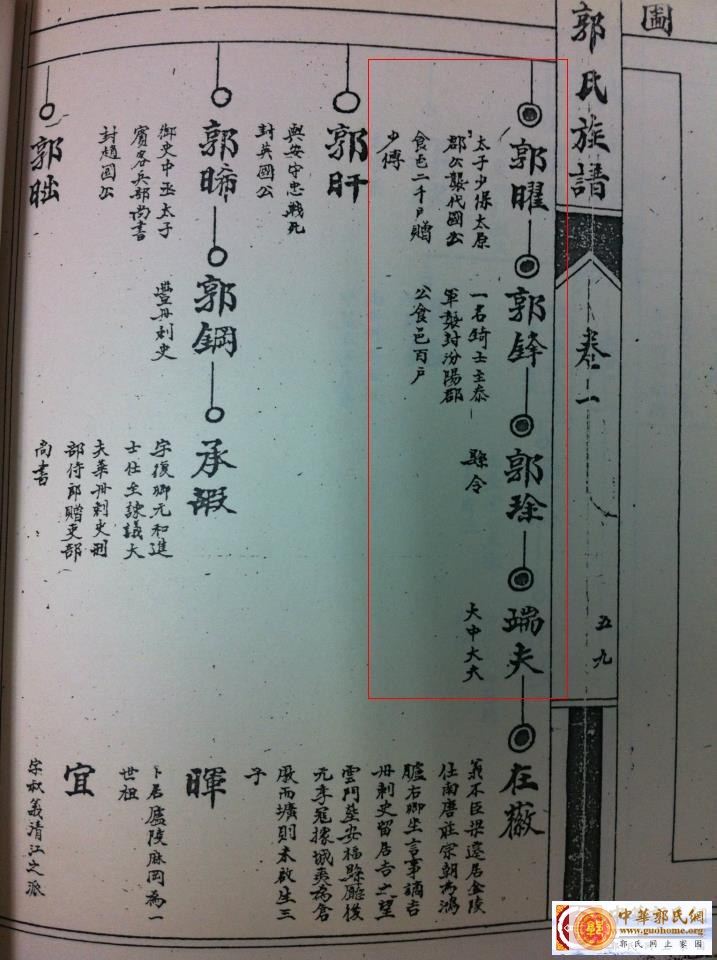 圖
郭氏族譜
卷一
五九
郭曜
太子少保太原
郡公襲代國公
食邑二千戶贈
少傅
郭鋒
一名錡士主泰
軍襲封汾陽郡
公食邑百戶
郭琮
縣令
瑞夫
大中大夫
在薇
義不臣梁遷居金陵
仕南唐莊宗朝為鴻
臚右卿坐言事謫吉
州刺史留居吉之望
雲門墓安福縣廳後
元季冠據城夷為倉
廒而壙則未啟生三
子
郭旰
與安守忠戰死
封英國公
郭晞
御史中丞太子
賓客兵部尚書
封趙國公
郭鋼
豐州刺史
承嘏
字復卿元和進
士仕至諫議大
夫華州刺史刑
部侍郎贈吏部
尚書
暉
卜居廬陵麻岡為一
世祖
宜
字秋義清江之派
郭昢
中華郭氏網
www.guohome.org
郭氏網上家園